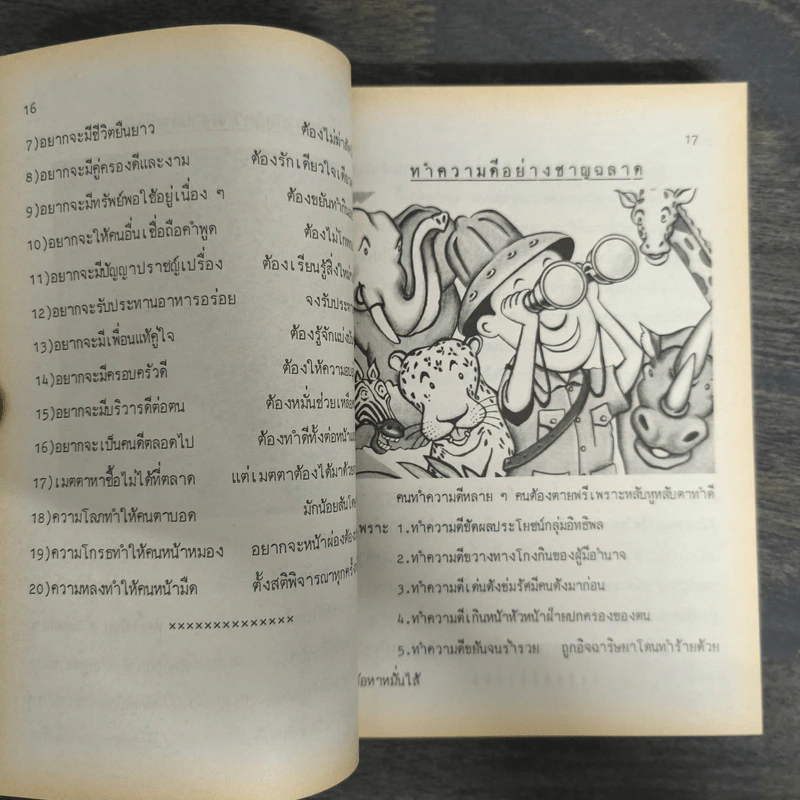 16
7)อยากจะมีชีวิตยืนยาว ต้องไม่ฆ่าสัตว์
8)อยากจะมีคู่ครองดีและงาม ต้องรักเดียวใจเดียว
9)อยากจะมีทรัพย์พอใช้อยู่เนื่อง ๆ ต้องขยันทำกิน
10)อยากจะให้คนอื่นเชื่อถือคำพูด ต้องไม่โกหก
11)อยากจะมีปัญญาปราชญ์เปรื่อง ต้องเรียนรู้สิ่งใหม่
12)อยากจะรับประทานอาหารอร่อย จงรับประทา
13)อยากจะมีเพื่อนแท้คู่ใจ ต้องรู้จักแบ่งปัน
14)อยากจะมีครอบครัวดี ต้องให้ความอบอ
15)อยากจะมีบริวารดีต่อตน ต้องหมั่นช่วยเหลือ
16)อยากจะเป็นคนดีตลอดไป ต้องทำดีทั้งต่อหน้าแ
17)เมตตาหาซื้อไม่ได้ที่ตลาด แต่เมตตาต้องได้มาด้วย
18)ความโลภทำให้คนตาบอด มักน้อยสันโด
19)ความโกรธทำให้คนหน้าหมอง อยากจะหน้าผ่องต้อง
20)ความหลงทำให้คนหน้ามืด ตั้งสติพิจารณาทุกครั้ง
××××××××××××××
17
ทำความดีอย่างชาญฉลาด
คนทำความดีหลาย ๆ คนต้องตายฟรีเพราะหลับหูหลับตาทำดี
เพราะ 1.ทำความดีขัดผลประโยชน์กลุ่มอิทธิพล
2.ทำความดีขวางทางโกงกินของผู้มีอำนาจ
3.ทำความดีเด่นดังข่มรัศมีคนดังมาก่อน
4.ทำความดีเกินหน้าหัวหน้าฝ่ายปกครองของตน
5.ทำความดีขยันจนร่ำรวย ถูกอิจฉาริษยาโดนทำร้ายด้วย
ข้อหาหมั่นไส้